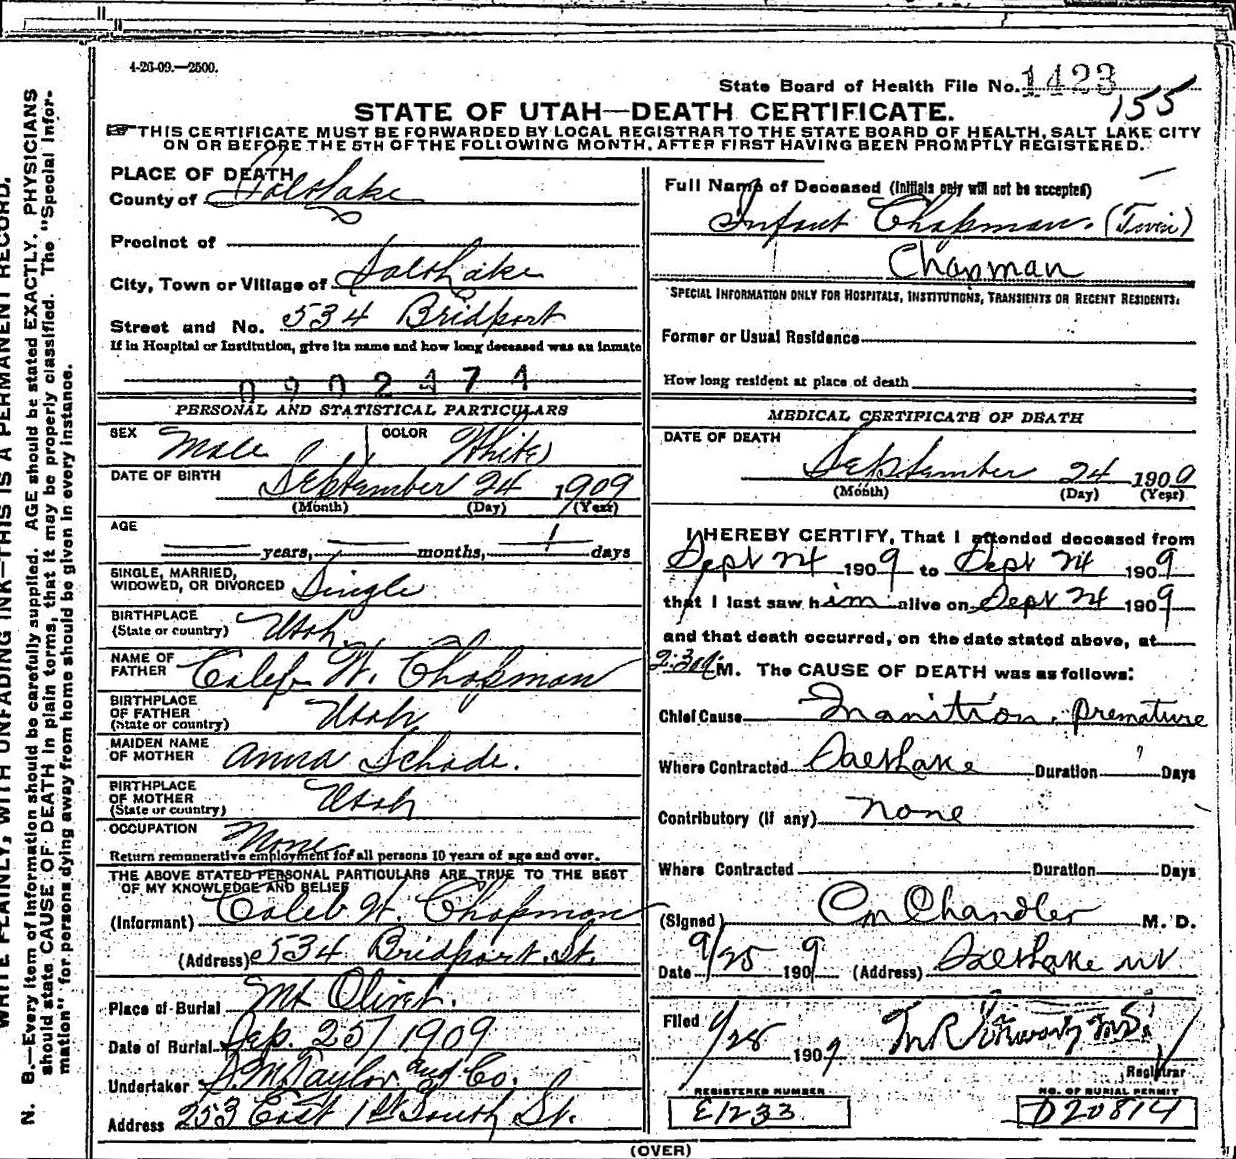 4-26-09.—2500.
State Board of Health File No. 1423
155
STATE OF UTAH—DEATH CERTIFICATE.
☞THIS CERTIFICATE MUST BE FORWARDED BY LOCAL REGISTRAR TO THE STATE BOARD OF HEALTH, SALT LAKE CITY
ON OR BEFORE THE 5TH OF THE FOLLOWING MONTH, AFTER FIRST HAVING BEEN PROMPTLY REGISTERED.
PLACE OF DEATH
County of Salt Lake
Precinct of
City, Town or Village of Salt Lake
Street and No. 534 Bridport
If in Hospital or Institution, give its name and how long deceased was an inmate
0902474
PERSONAL AND STATISTICAL PARTICULARS
SEX Male COLOR White
DATE OF BIRTH September 24 1909
(Month) (Day) (Year)
AGE
— years, — months, 1 days
SINGLE, MARRIED,
WIDOWED, OR DIVORCED Single
BIRTHPLACE
(State or country) Utah.
NAME OF
FATHER Caleb W. Chapman
BIRTHPLACE
OF FATHER
(State or country) Utah
MAIDEN NAME
OF MOTHER Anna Schade.
BIRTHPLACE
OF MOTHER
(State or country) Utah
OCCUPATION None
Return remunerative employment for all persons 10 years of age and over.
THE ABOVE STATED PERSONAL PARTICULARS ARE TRUE TO THE BEST
OF MY KNOWLEDGE AND BELIEF
(Informant) Caleb W. Chapman
(Address) 534 Bridport St.
Place of Burial Mt Olivet.
Date of Burial Sep. 25 1909
Undertaker S. M. Taylor and Co.
Address 253 East 1st South St.
Full Name of Deceased (Initials only will not be accepted)
Infant Chapman. (Twin)
Chapman
SPECIAL INFORMATION ONLY FOR HOSPITALS, INSTITUTIONS, TRANSIENTS OR RECENT RESIDENTS.
Former or Usual Residence
How long resident at place of death
MEDICAL CERTIFICATE OF DEATH
DATE OF DEATH
September 24 1909
(Month) (Day) (Year)
I HEREBY CERTIFY, That I attended deceased from
Sept 24 1909 to Sept 24 1909
that I last saw him alive on Sept 24 1909
and that death occurred, on the date stated above, at
M. The CAUSE OF DEATH was as follows:
Chief Cause Inanition, premature
Where Contracted Salt Lake Duration Days
Contributory (if any) none
Where Contracted Duration Days
(Signed) Chandler M. D.
Date 9/25 1909 (Address) Salt Lake
Filed 9/28 1909
Registrar
REGISTERED NUMBER
E1233
NO. OF BURIAL PERMIT
D20814
(OVER)
WRITE PLAINLY, WITH UNFADING INK—THIS IS A PERMANENT RECORD.
N. B.—Every item of information should be carefully supplied. AGE should be stated EXACTLY. PHYSICIANS
should state CAUSE OF DEATH in plain terms, that it may be properly classified. The "Special Infor-
mation" for persons dying away from home should be given in every instance.